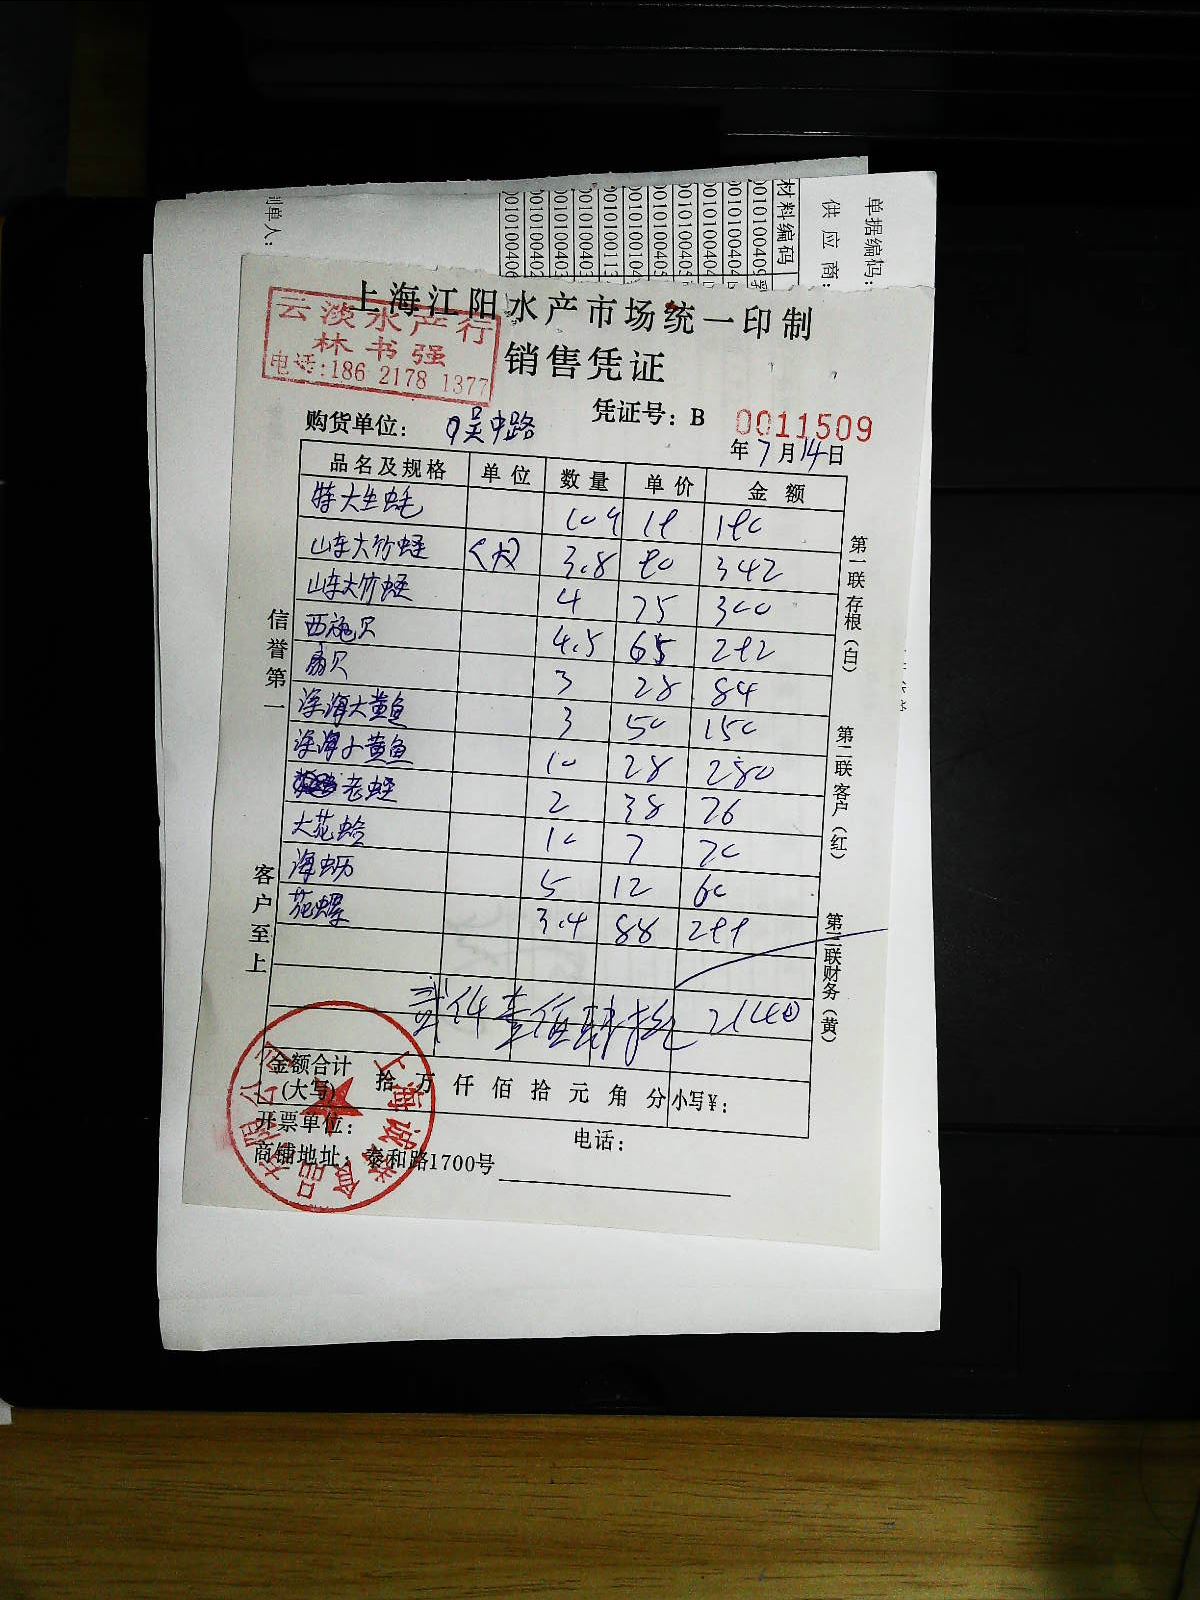 单据编码:
供应商:
材料编码
制单人:
上海江阳水产市场统一印制
销售凭证
云淡水产行
林书强
电话:186 2178 1377
凭证号: B 0011509
购货单位: 吴中路
年7月14日
品名及规格 单位 数量 单价 金额
特大生蚝 10个 19 190
山东大竹蛏 (大) 3.8 90 342
山东大竹蛏 4 75 300
西施贝 4.5 65 292
扇贝 3 28 84
深海大黄鱼 3 50 150
深海小黄鱼 10 28 280
老蛏 2 38 76
大花蛤 10 7 70
海蛎 5 12 60
花螺 3.4 88 299
贰仟壹佰肆拾元 2140
金额合计
(大写) 拾万仟佰拾元角分 小写¥:
开票单位: 电话:
商铺地址: 泰和路1700号
信誉第一
客户至上
第一联存根(白)
第二联客户(红)
第三联财务(黄)